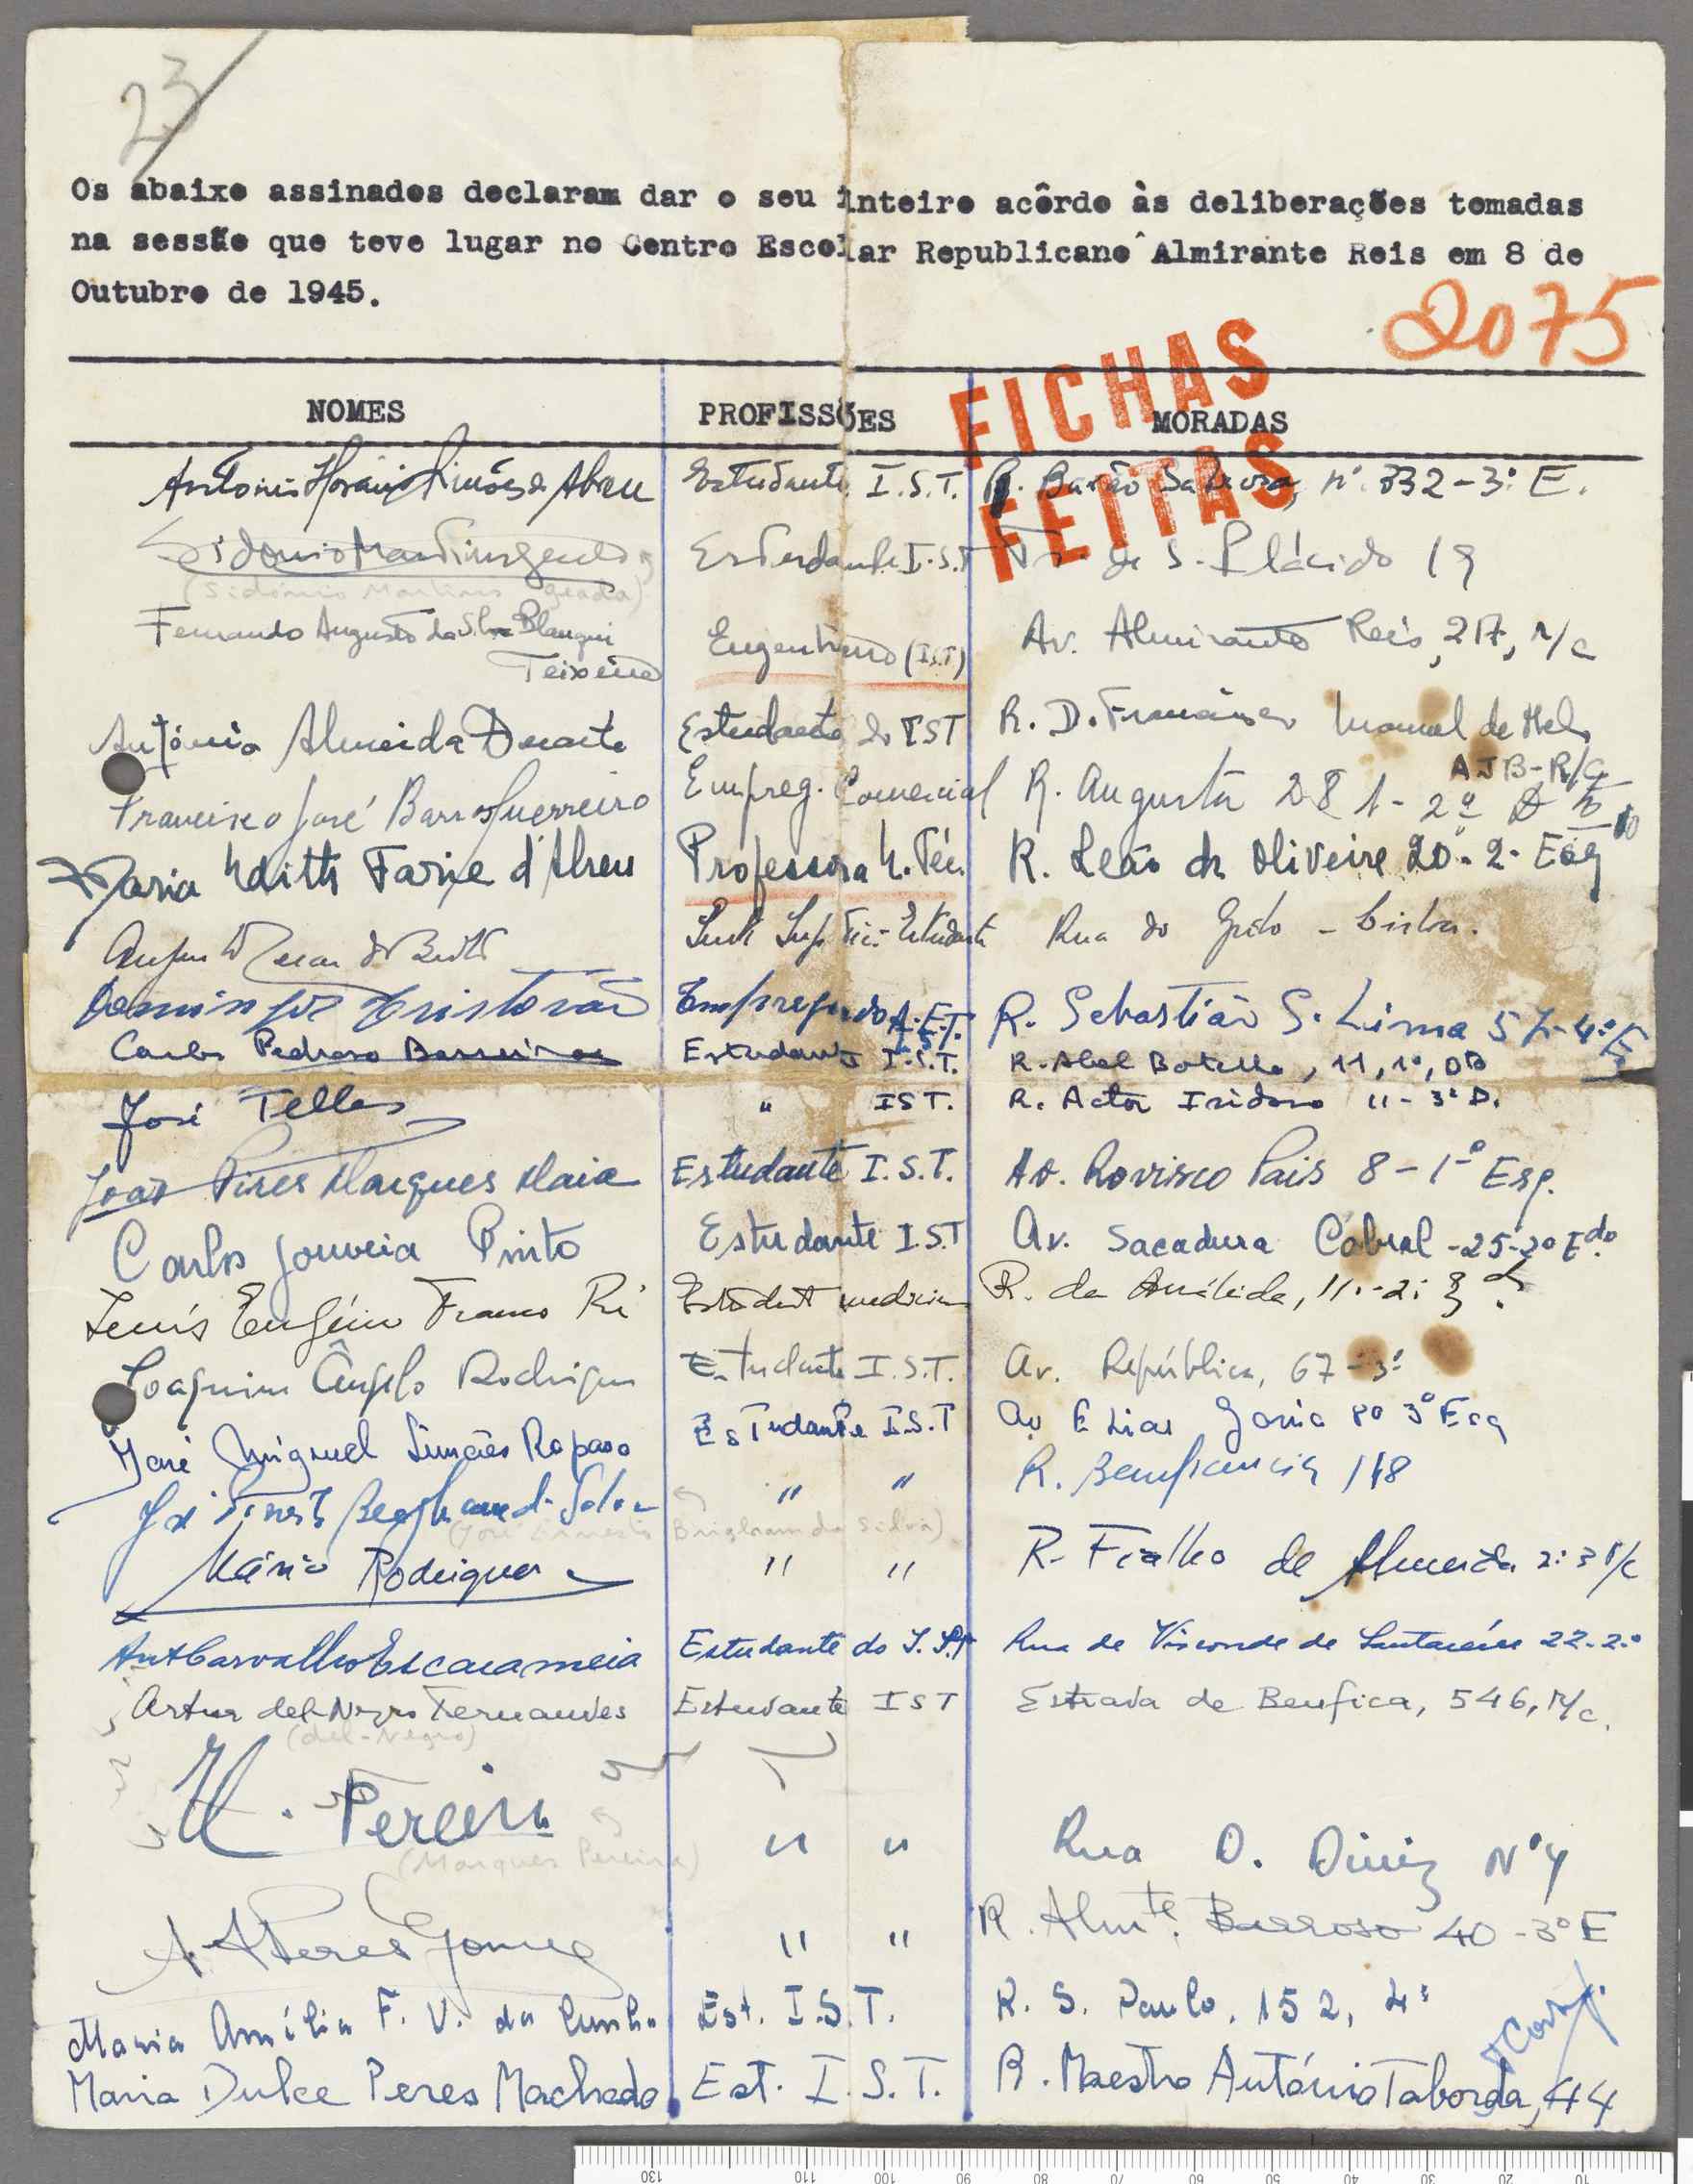 23
Os abaixo assinados declaram dar o seu inteiro acôrdo às deliberações tomadas
na sessão que teve lugar no Centro Escolar Republicano Almirante Reis em 8 de
Outubro de 1945.
2075
FICHAS FEITAS
NOMES PROFISSÕES MORADAS
António Simões Abreu Estudante I.S.T. R. Barão Sabrosa, nº 332-3º E.
Sidónio Martins Estudante I.S.T Tr. de S. Plácido 19
(Sidónio Martins)
Fernando Augusto da Silva Blanqui Engenheiro (IST) Av. Almirante Reis, 217, r/c
Teixeira
António Almeida Duarte Estudante do IST R. D. Francisco Manuel de Melo
AJB-R/C
Francisco José Barros Guerreiro Empreg. Comercial R. Augusta 281-2º
Maria Edith Faria d'Abreu Professora R. Leão de Oliveira 20-2-Esq
Estudante Rua do
Domingos Cristovão Empregado A.E.I.S.T. R. Sebastião S. Lima 57-4º E
Carlos Pedroso Barreiros Estudante I.S.T. R. Abel Botelho, 11, 1º, DB
José Telles " IST. R. Actor Isidoro 11-3º D.
João Pires Marques Maia Estudante I.S.T. Av. Rovisco Pais 8-1º Esq.
Carlos Gouveia Pinto Estudante I.S.T Av. Sacadura Cabral -25-2º Edo
Luís Eugénio Franco Estudante medicina R. da 11-2º
Joaquim Ângelo Rodrigues Estudante I.S.T. Av. República, 67-3º
José Miguel Simões Raposo Estudante I.S.T Av Elias Garcia 80 3º Esq
José Ernesto da Silva " " R. Beneficencia 118
(José Ernesto Brigham da Silva)
Mário Rodrigues " " R. Fialho de Almeida r/c
Ant Carvalho Escarameia Estudante do I.S.T Rua de Visconde de Santarém 22-2º
Artur del-Negro Fernandes Estudante IST Estrada de Benfica, 546, r/c.
(del-Negro)
M. Pereira " " Rua D. Diniz Nº 4
(Marques Pereira)
A. Peres Gomes " " R. Almte. Barroso 40-3º E
Maria Amélia F. V. da Cunha Est. I.S.T. R. S. Paulo, 152, 4º
Maria Dulce Peres Machado Est. I.S.T. R. Maestro António Taborda, 44